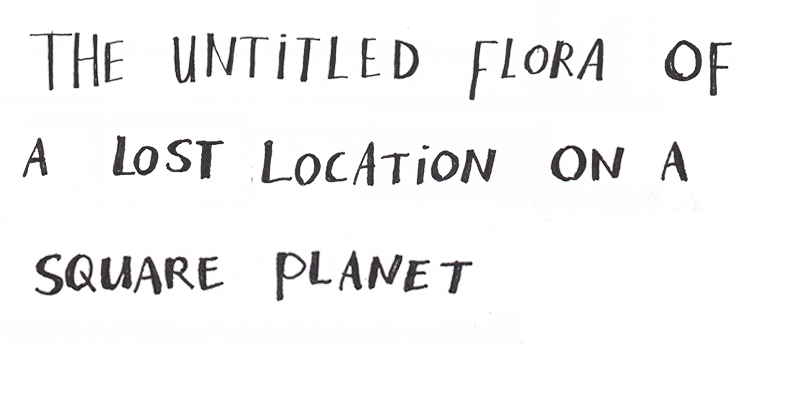 THE UNTiTLED FLORA OF
A LOST LOCATiON ON A
SQUARE PLANET